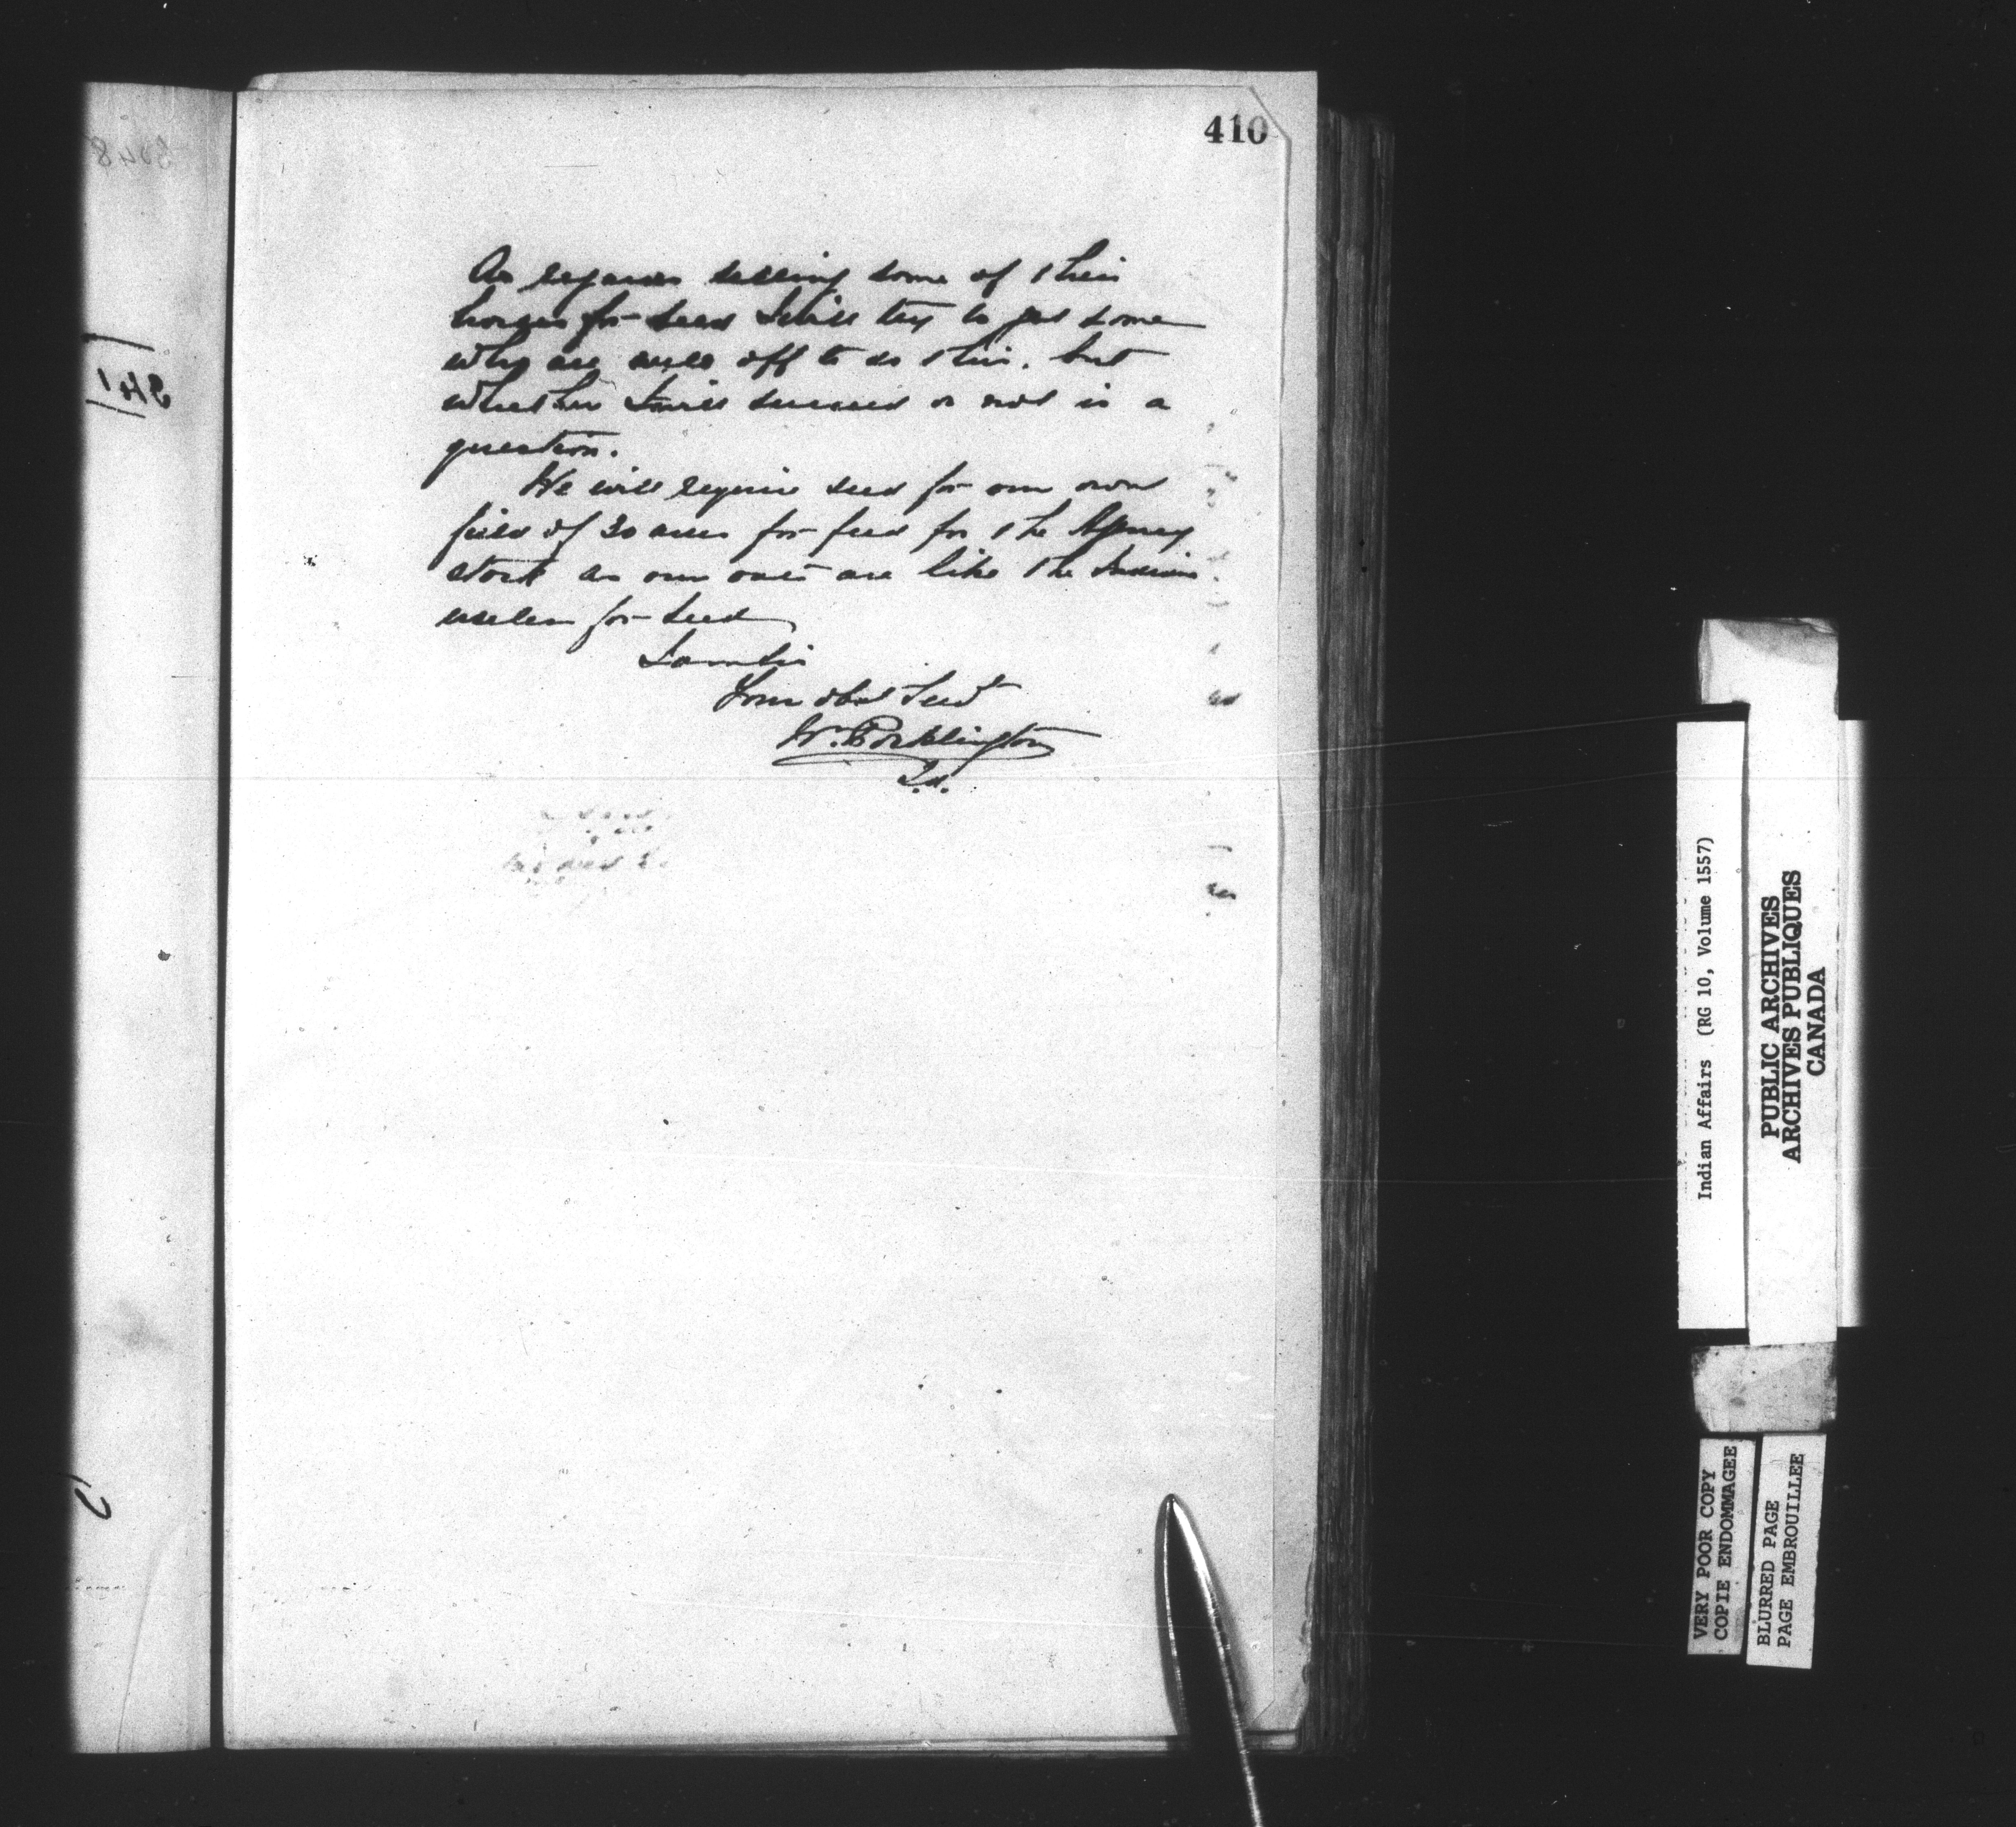 410
As regards selling some of their
horses for seed I will try to get some
who are well off to do this. but
whether I will succeed or not is a
question.
We will require seed for our own
field of 30 acres for feed for the Agency
stock as our oats are like the Indians
useless for seed
I am Sir
Your obed Servt
W. Pocklington
I.A.
341
Indian Affairs (RG 10, Volume 1557)
PUBLIC ARCHIVES
ARCHIVES PUBLIQUES
CANADA
VERY POOR COPY
COPIE ENDOMMAGEE
BLURRED PAGE
PAGE EMBROUILLEE